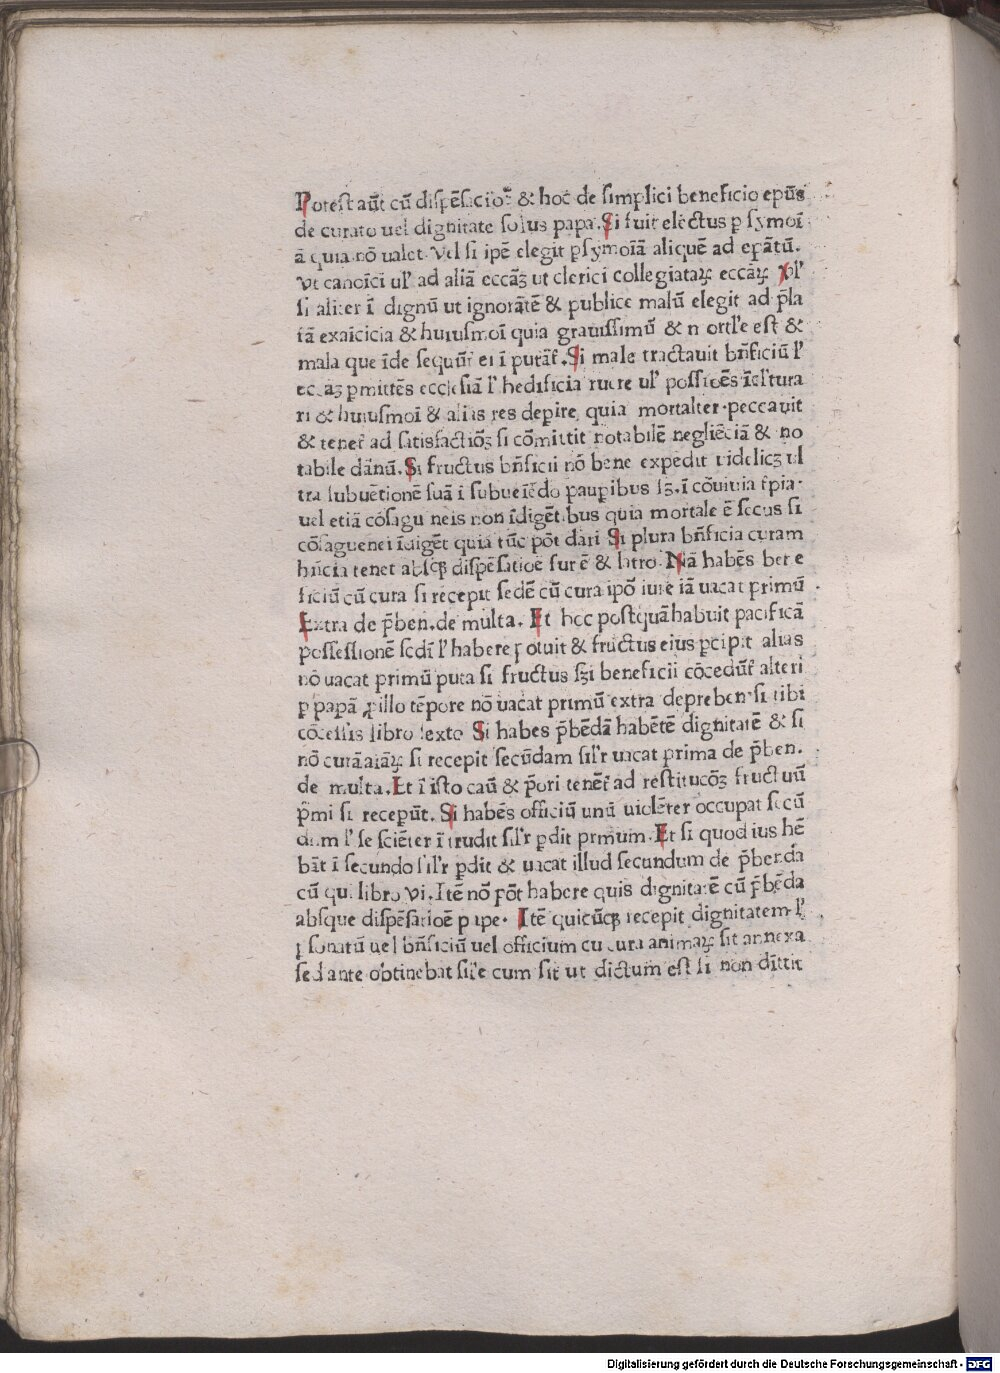 Potest aūt cū dispēsacio᷑ & hoc de simplici beneficio epūs
de curato uel dignitate solus papa. Si fuit electus ꝑ symoī
ā quia nō ualet. Vel si ipē elegit ꝑsymoīā aliquē ad epātū.
Vt canoīci ul' ad aliā eccāꝫ ut clerici collegiataꝝ eccāꝝ Vl'
si aliter ī dignū ut ignorātē & publice malū elegit ad p̄la
tā exaicicia & huiusmoī quia grauissimū & mortl'e est &
mala que īde sequūt᷑ ei ī putāt᷑. Si male tractauit bn̄ficiū l'
eccāꝫ ꝑmittēs ecclesiā l' hedificia ruere ul' possiōēs
ri & huiusmoī & alias res deꝑire, quia mortalter peccauit
& tenet᷑ ad satisfactiōꝫ si cōmittit notabilē negliēciā & no
tabile dānū. Si fructus bn̄ficii nō bene expedit uidelicꝫ ul
tra subuētionē suā ī subueiēdo pauꝑibus sꝫ. ī cōuiuia
uel etiā cōsagu neis non īdigētibus quia mortale ē secus si
cōsaguenei īdigēt quia tūc pōt dari Si plura bn̄ficia curam
hn̄cia tenet absqꝫ dispēsatioē fur ē & latro. Nā habēs bene
ficiū cū cura si recepit sedē cū cura ipō iure iā uacat primū
Extra de p̄ben. de multa. Et hoc postquā habuit pacificā
possessionē secdī l' habere potuit & fructus eius ꝑcipit alias
nō uacat primū puta si fructus scdi beneficii cōcedūt᷑ alteri
ꝑ papā ꝓ illo tēpore nō uacat primū extra depreben. si tibi
cōcessis libro sexto Si habes p̄bēdā habētē dignitatē & si
nō curā aiāꝝ si recepit secūdam sil'r uacat prima de p̄ben.
de multa. Et ī isto caū & p̄ori tenēt᷑ ad restitucōꝫ fructuū
p̄mi si receperūt. Si habēs officiū unū uiolēter occupat secū
dum l' se sciēter ī trudit sil'r ꝑdit primum. Et si quod ius hē
bāt ī secundo sil'r ꝑdit & uacat illud secundum de p̄benda
cū qui libro VI. Itē nō pōt habere quis dignitatē cū p̄bēda
absque dispēsatioē pape. Itē quicūqꝫ recepit dignitatem l'
ꝑsonatū uel bn̄ficiū uel officium cu cura animaꝝ sit annexa
sed ante obtinebat sil'e cum sit ut dictum est si non dīttit
Digitalisierung gefördert durch die Deutsche Forschungsgemeinschaft - DFG